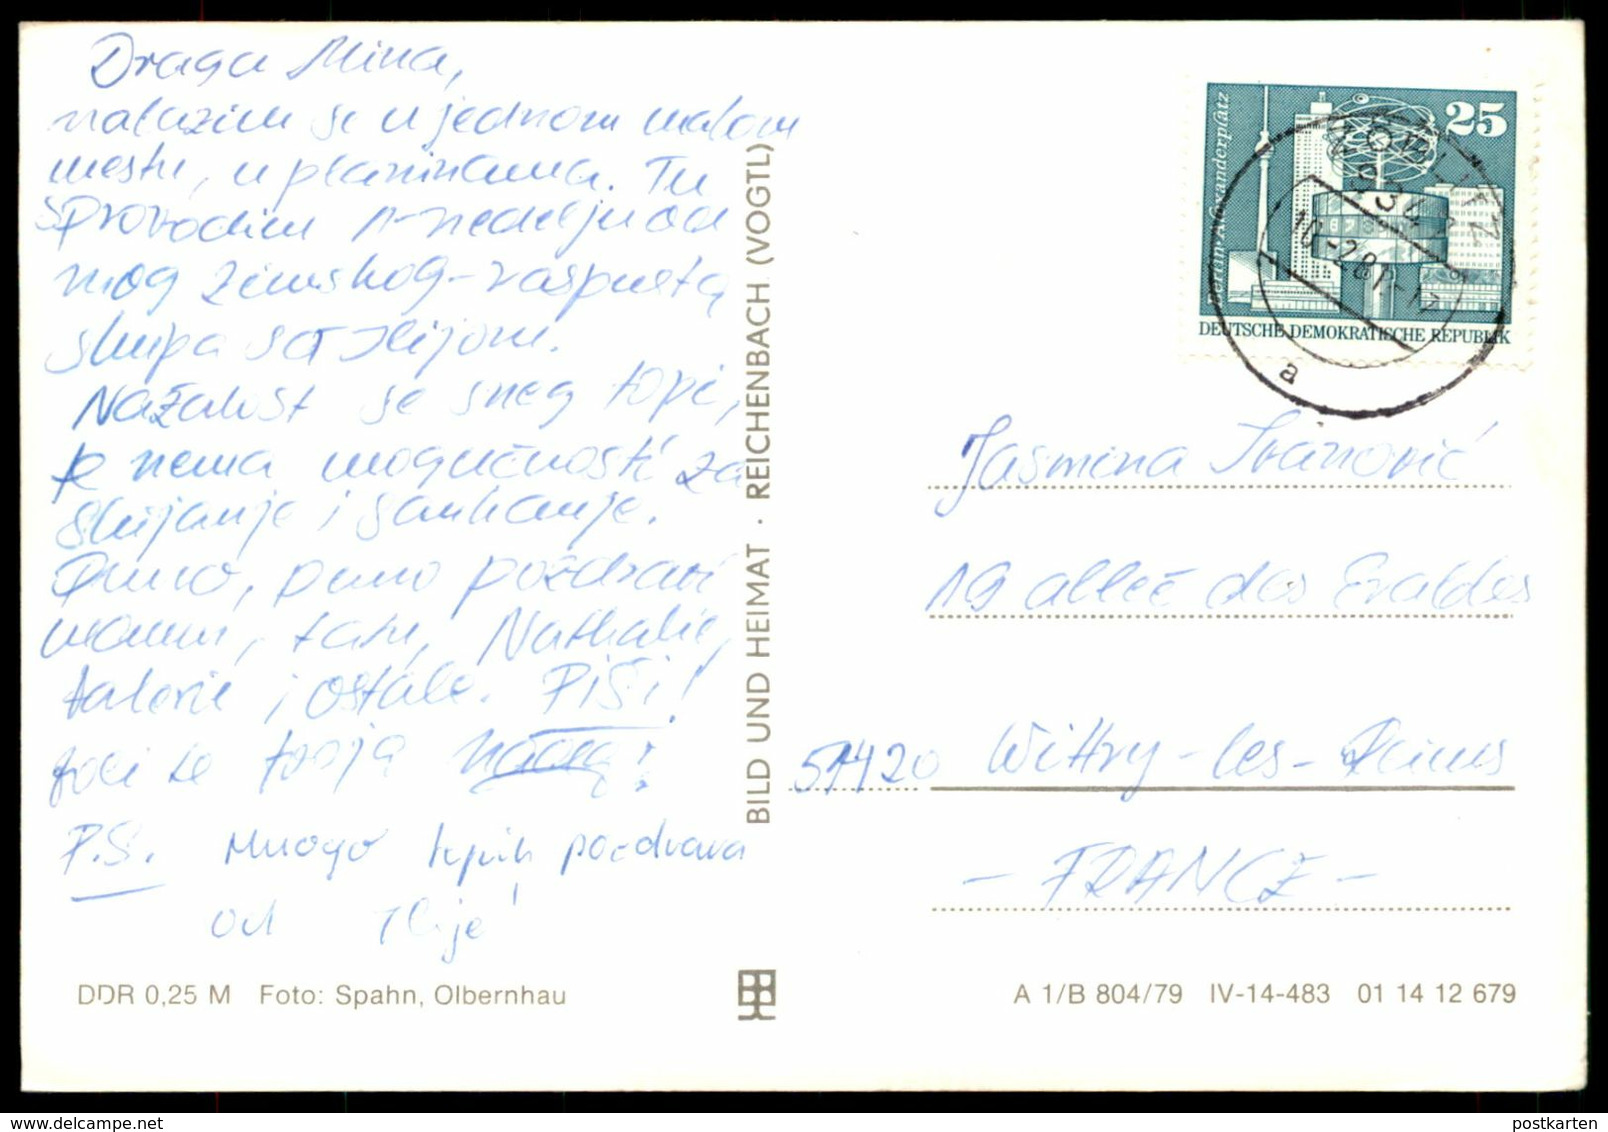 Draga Mina,
nalazim se u jednom malom
mestu, u planinama. Tu
sprovodim 1-nedelju od
mog zimskog-raspusta
skupa sa Ilijom.
Nažalost se sneg topi,
pe nema mogučnosti za
skijanje i sankanje.
Puno, puno pozdravi
mamu, tatu, Nathalie,
Valerie i ostale. PIŠI!
Voli te tvoja
P.S. Mnogo lepih pozdrava
od Ilije!
DDR 0,25 M Foto: Spahn, Olbernhau
BILD UND HEIMAT · REICHENBACH (VOGTL)
Berlin-Alexanderplatz
25
DEUTSCHE DEMOKRATISCHE REPUBLIK
10.-2.81-17
a
Jasmina Ivanović
19 alleé des
51420 Wittry-les-Reims
- FRANCE -
A 1/B 804/79 IV-14-483 01 14 12 679
postkarten
www.delcampe.net